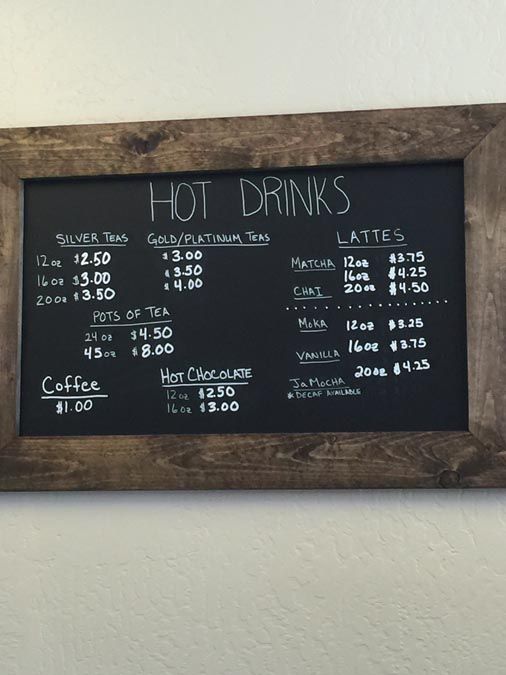 HOT DRINKS
SILVER TEAS
12oz $2.50
16oz $3.00
20oz $3.50
GOLD/PLATINUM TEAS
$3.00
$3.50
$4.00
POTS OF TEA
24oz $4.50
45oz $8.00
Coffee
$1.00
HOT CHOCOLATE
12oz $2.50
16oz $3.00
LATTES
MATCHA 12oz $3.75
16oz $4.25
CHAI 20oz $4.50
MOKA 12oz $3.25
16oz $3.75
VANILLA
20oz $4.25
JAMOCHA
*DECAF AVAILABLE